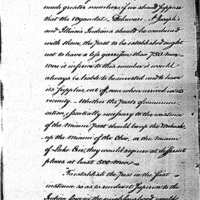 much greater numbers; if we suppose
that the Wyandots, Delawares, St Joseph's
and Illinois Indians should be combined
with them, the post to be established ought
not to have a less garrison than 750 men.
were it inferior to this number it would
always be liable to be invested and to have
its supplies cut off, even when arrived in its
vicinity. Whether the posts of communi-
cation, (partially necessary to the existence
of the Miami post should be up the Wabash,
up the Miami of the Ohio, or the Miami
of Lake Erie, they would require at different
places at least 500 more.
To establish the post in the first
instance so as to render it superior to the
Indian force in the neighborhood, would